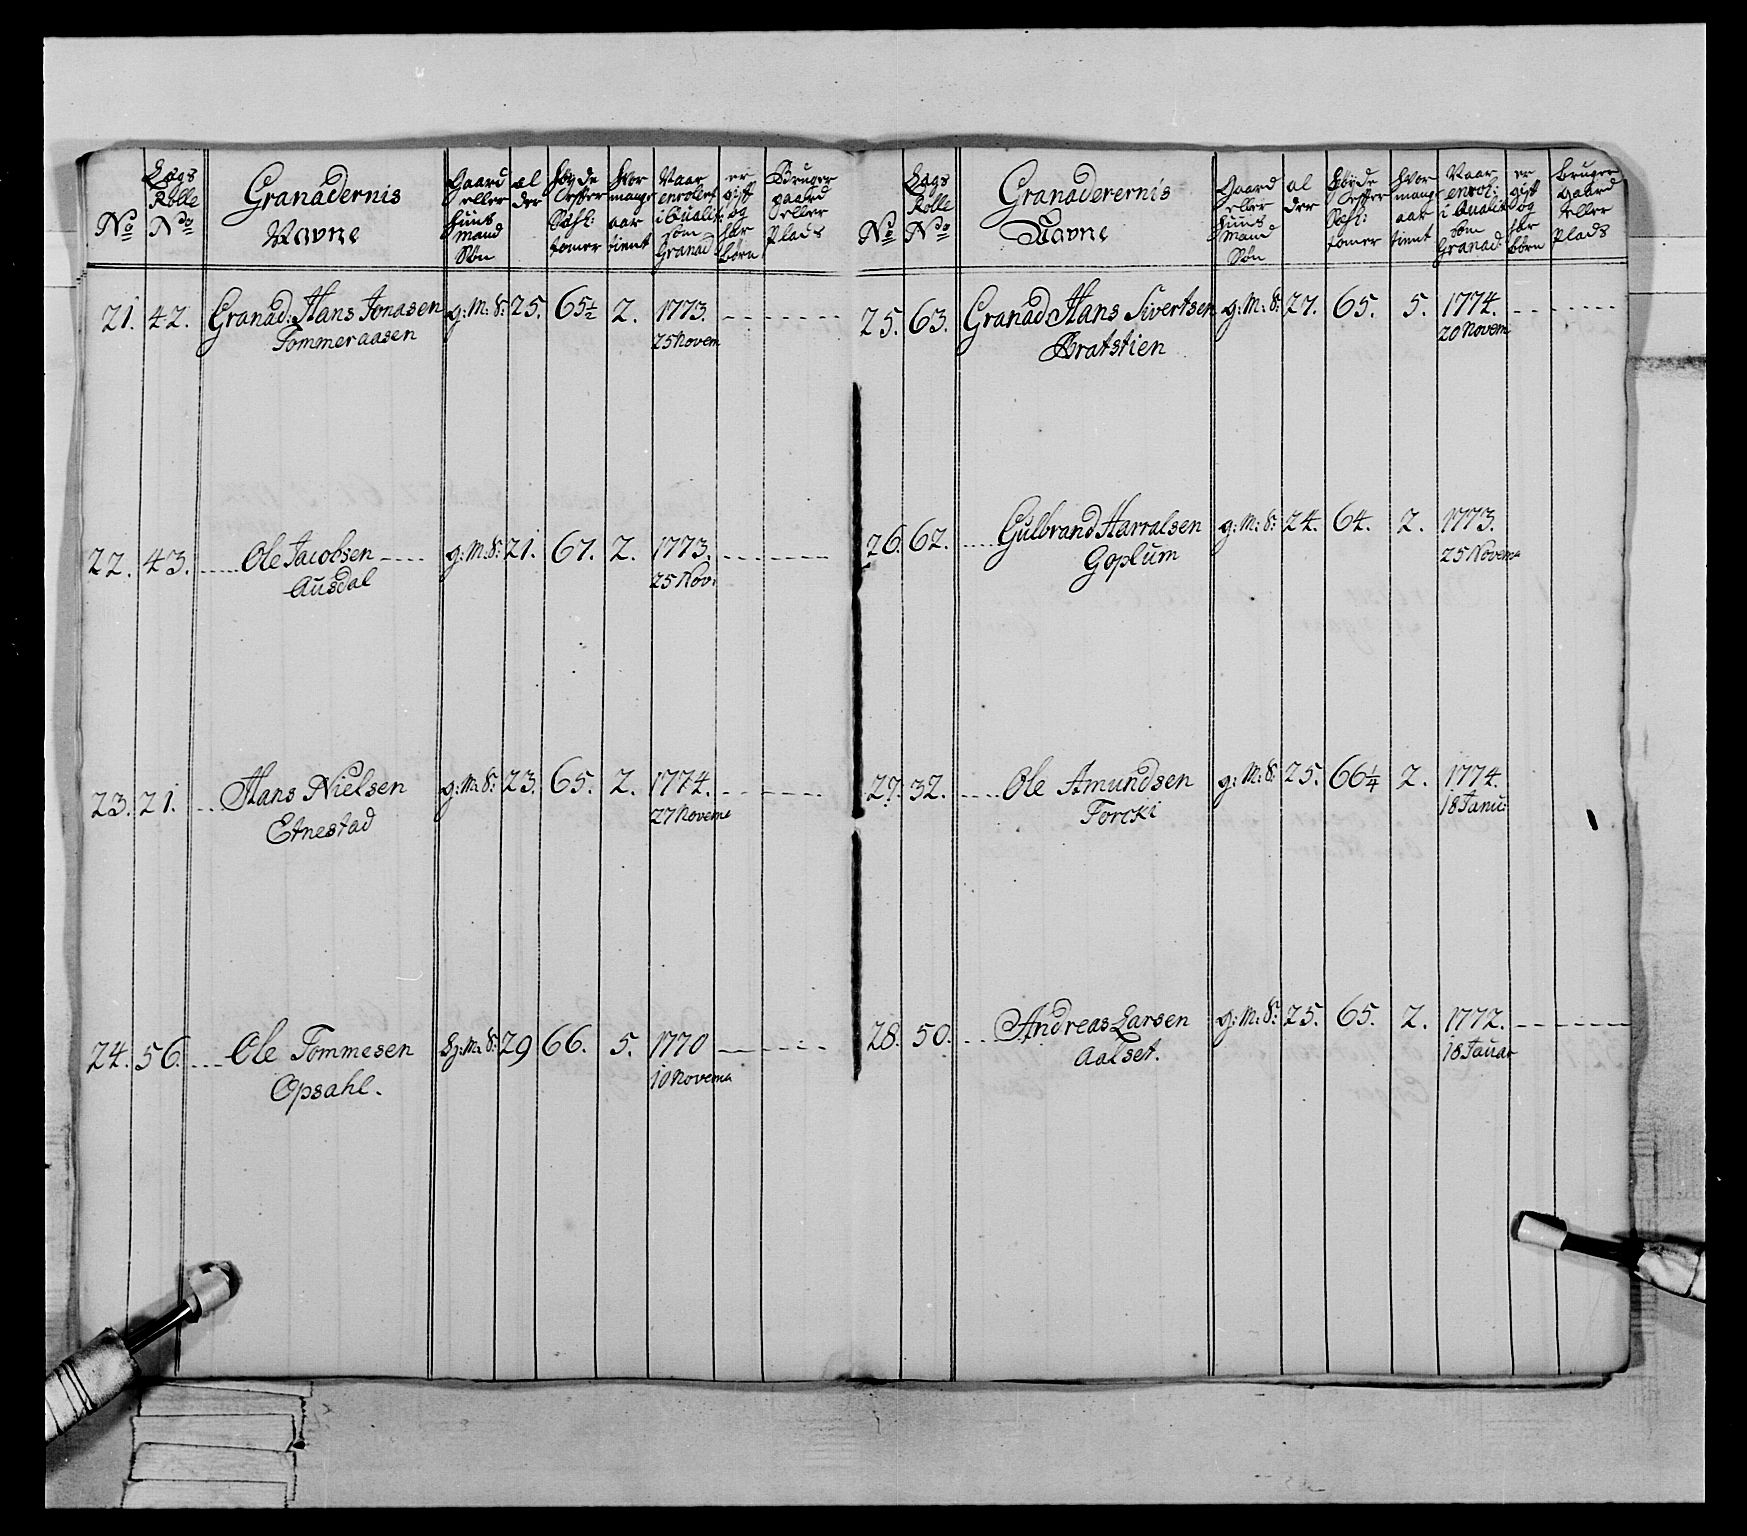 No
Lægs Rolle No
Granadernis Navne
Gaard eller Huus Mand Søn
al der
Høyde Eefter Sæhl: tomer
Hvor mange aar tient
Naar enrolert i Qualit: som Granad:
er gift og har børn
Bruger gaard eller Plads
21. 42. Granad: Hans Jonasen g: M: S: 25. 65½ 2. 1773.
Tommeraasen 25 Novem
22. 43. Ole Jacobsen g: M: S: 21. 67. 2. 1773.
Ausdal 25 Nov:
23. 21. Hans Nielsen g: M: S: 23. 65. 2. 1774.
Etnestad 27 Novem
24. 56. Ole Tommesen H: M: S: 29 66. 5. 1770
Opsahl. 10 Novem
No
Lægs Rolle No
Granaderernis Navne
Gaard eller Huus Mand Søn
al der
Høyde Eefter Sæhl: tomer
Hvor mange aar tient
Naar enrol: i Qualit som Granad:
er gift og har børn
Bruger gaard eller Plads
25. 63. Granad Hans Sivertsen g: M: S: 27. 65. 5. 1774.
Bratstien 20 Novem
26. 62. Gulbrand Harralsen g: M: S: 24. 64. 2. 1773.
Goplum 25 Novem
27. 32. Ole Amundsen g: M: S: 25. 66¼ 2. 1774.
Forcki 18 Janu:
28. 50. Andreas Larsen g: M: S: 25. 65. 2. 1772.
Aalset. 18 Januar